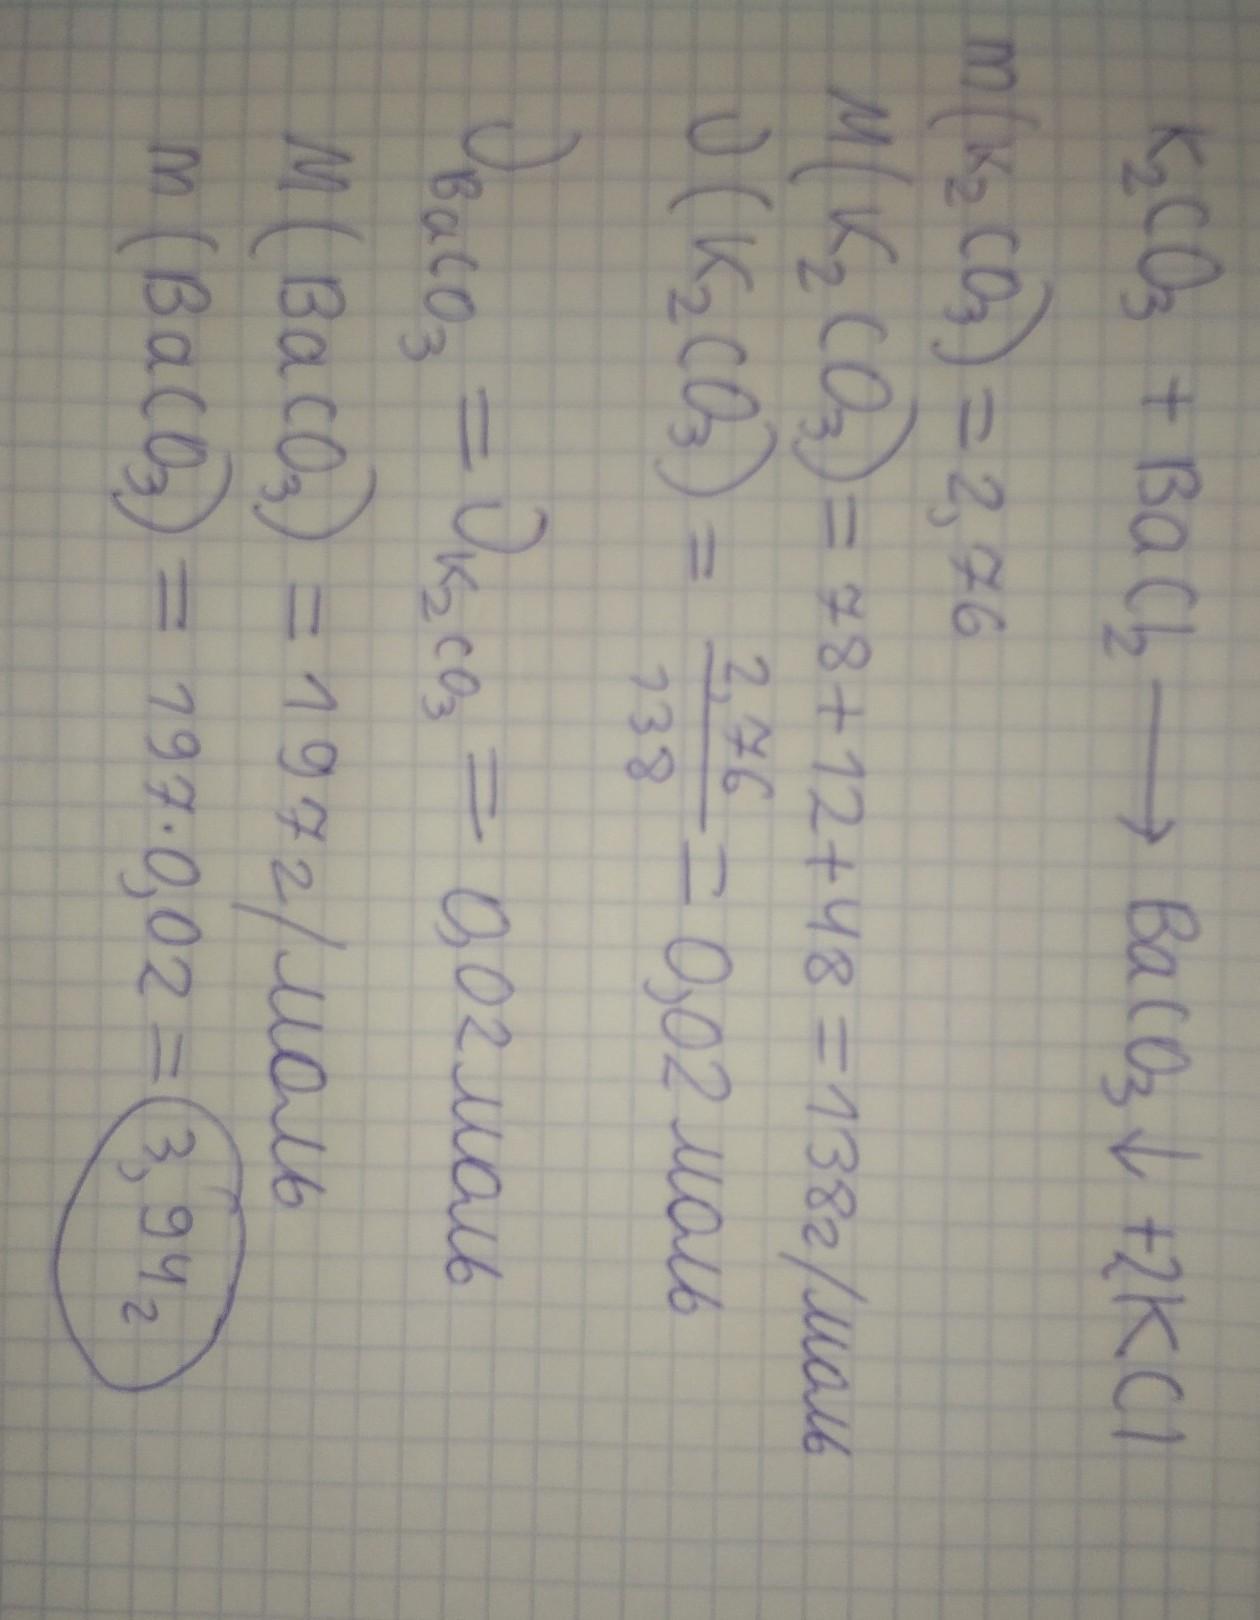 K₂CO₃ + BaCl₂ ⟶ BaCO₃↓ + 2KCl
m(K₂CO₃) = 2,76
M(K₂CO₃) = 78+12+48 = 138г/моль
ν(K₂CO₃) = 2,76/138 = 0,02 моль
νBaCO₃ = νK₂CO₃ = 0,02моль
M(BaCO₃) = 197г/моль
m(BaCO₃) = 197·0,02 = 3,94г